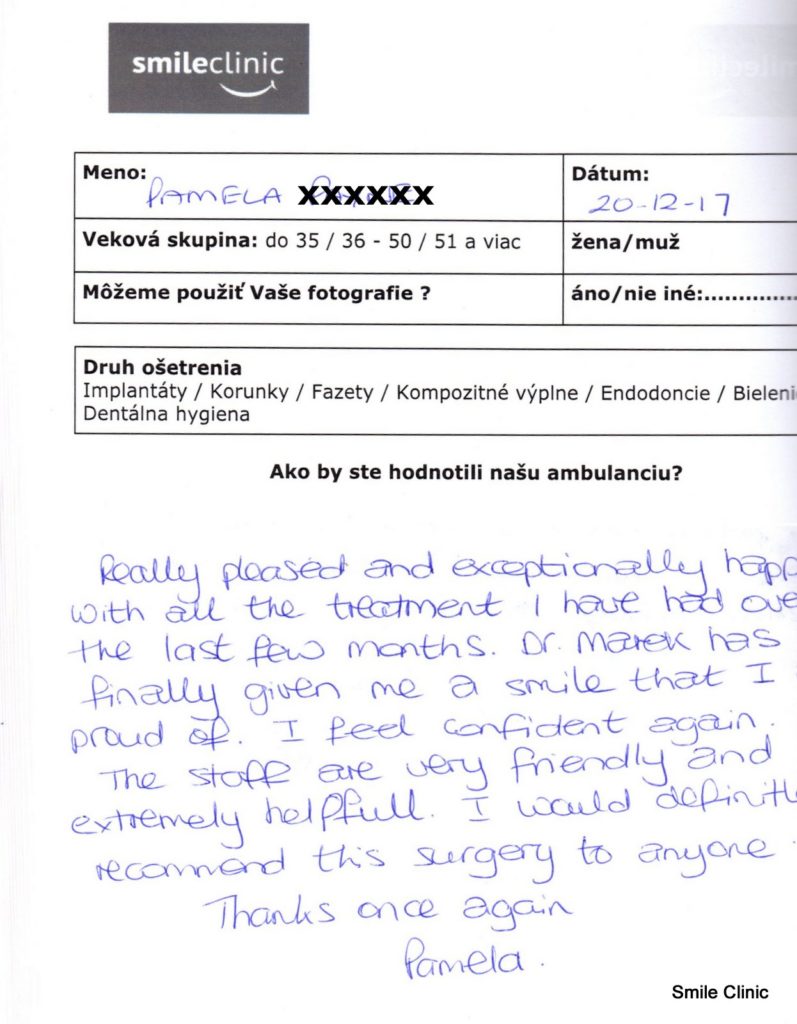 smileclinic
Meno: PAMELA XXXXXX
Dátum: 20-12-17
Veková skupina: do 35 / 36 - 50 / 51 a viac
žena/muž
Môžeme použiť Vaše fotografie ?
áno/nie iné:...............
Druh ošetrenia
Implantáty / Korunky / Fazety / Kompozitné výplne / Endodoncie / Bieleni
Dentálna hygiena
Ako by ste hodnotili našu ambulanciu?
Really pleased and exceptionally happ
with all the treatment I have had ove
the last few months. Dr. Marek has
finally given me a smile that I
proud of. I feel confident again.
The staff are very friendly and
extremely helpfull. I would definitl
recommend this surgery to anyone
Thanks once again
Pamela.
Smile Clinic